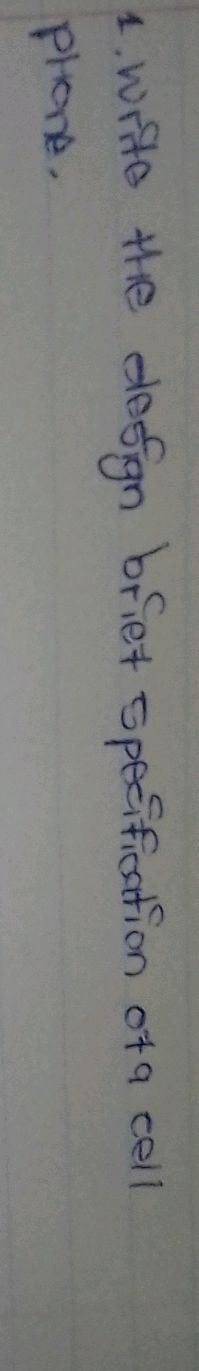 1. Write the design brief specification of a cell
phone.